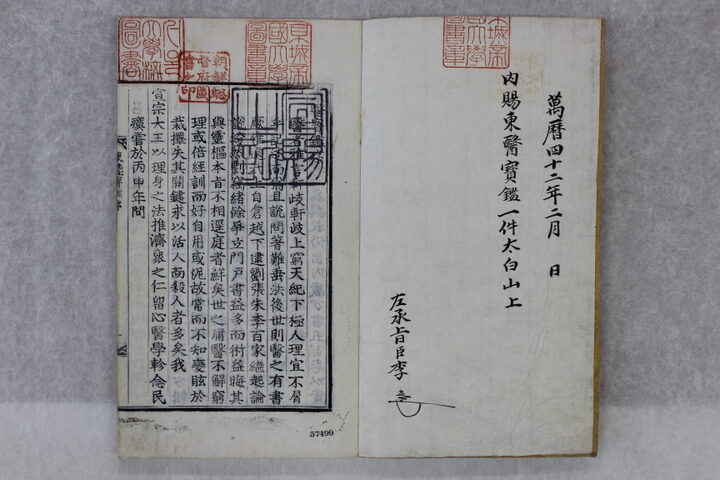 萬曆四十二年二月 日
內賜東醫寶鑑一件太白山上
左承旨臣李
京城帝
國大學
圖書章
朝鮮總
督府圖
書之印
大學校
圖書
醫者雅言軒岐軒岐上窮天紀下極人理宜不屑
乎記述而猶且說問著難垂法後世則醫之有書
厥惟遠哉上自倉越下逮劉張朱李百家繼起論
說紛然剽竊緖餘爭立門戶書益多而術益晦其
與靈樞本旨不相逕庭者鮮矣世之庸醫不解窮
理或倍經訓而好自用或泥故常而不知變眩於
裁擇失其關鍵求以活人而殺人者多矣我
宣宗大王以理身之法推濟衆之仁留心醫學軫念民
瘼嘗於丙申年間
57499